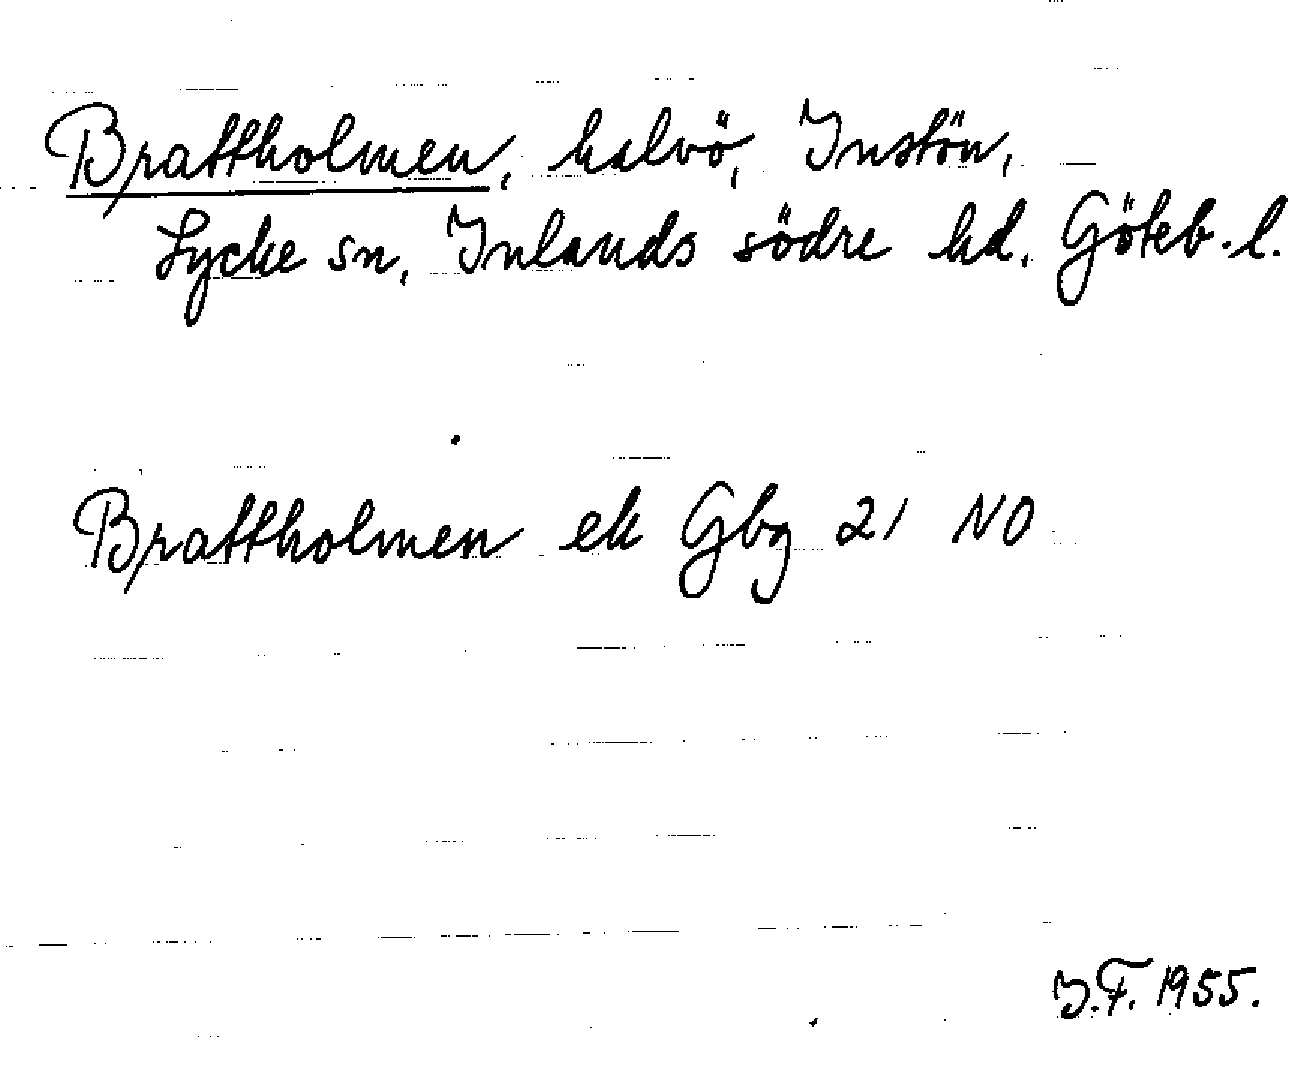 Brattholmen, halvö, Instön,
Lycke sn, Inlands södre hd. Göteb.l.
Brattholmen ek Gbg 21 NO
I.F. 1955.